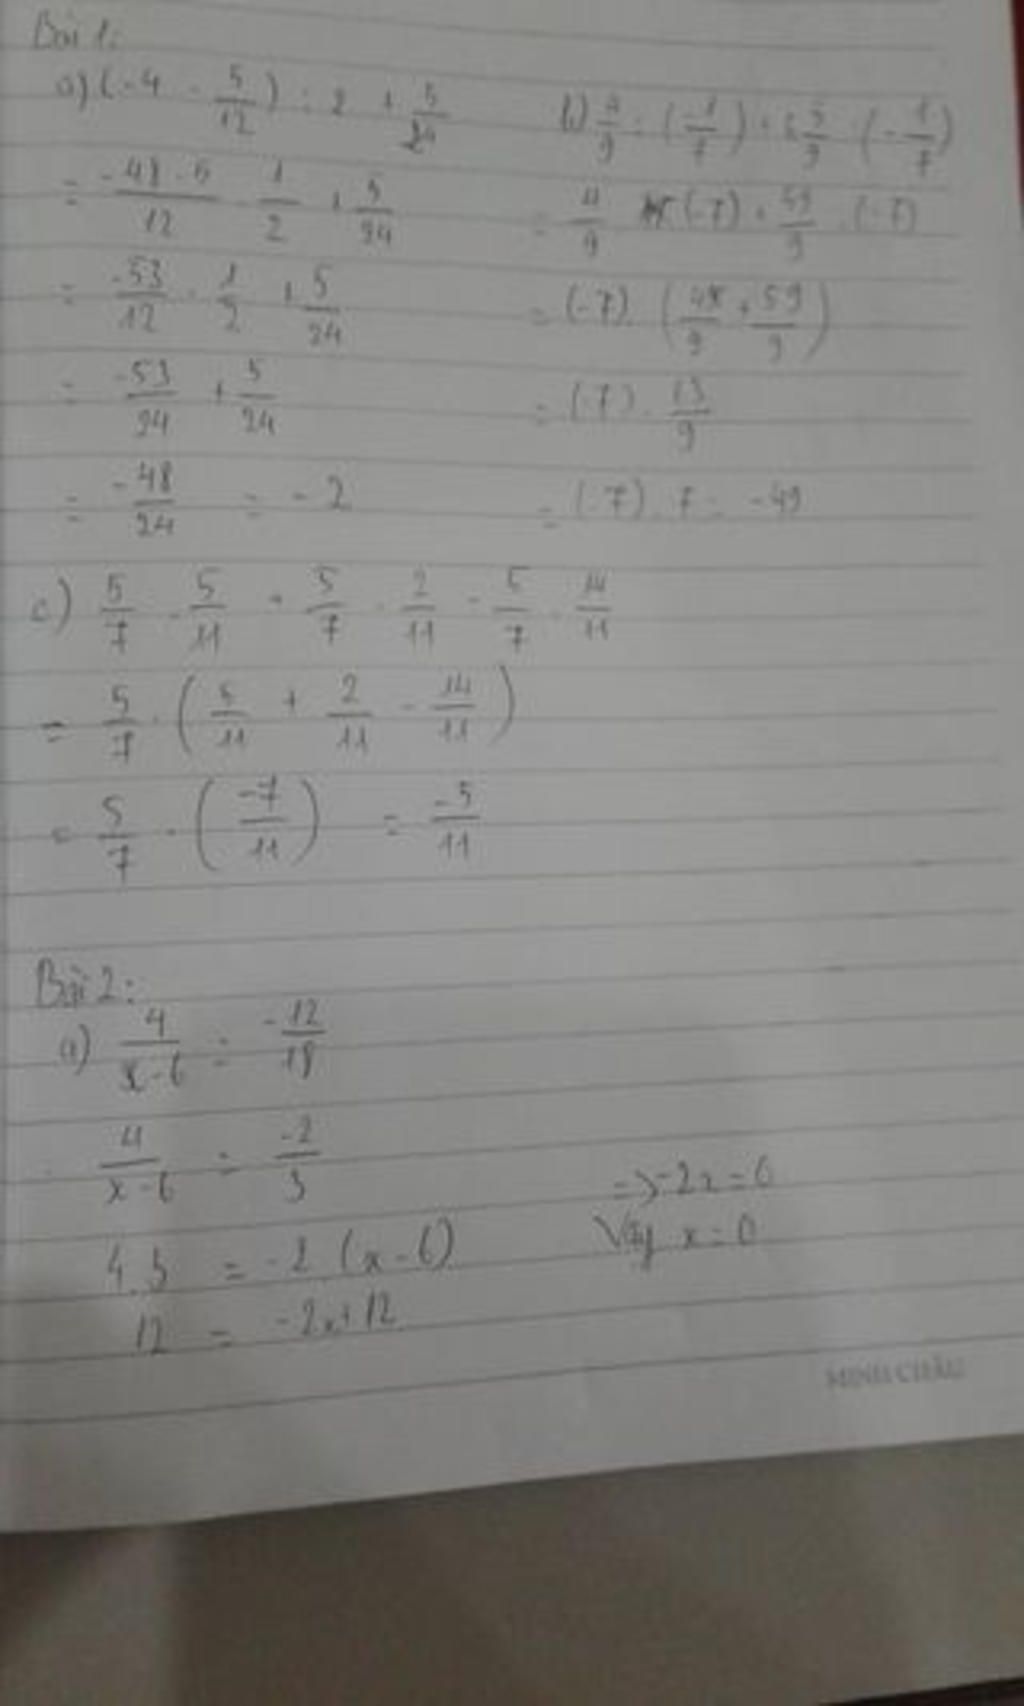 Bài 1:
a) (-4 - 5/12) : 2 + 5/24
= -48-5/12 . 1/2 + 5/24
= -53/12 . 1/2 + 5/24
= -53/24 + 5/24
= -48/24 = -2
b) 4/9 : (-1/7) + : (-1/7)
= 4/9 . (-7) + 59/9 . (-7)
= (-7) . ( + 59/9)
= (-7) .
= (-7) . 7 = -49
c) 5/7 . 5/11 + 5/7 . 2/11 - 5/7 . 14/11
= 5/7 . (5/11 + 2/11 - 14/11)
= 5/7 . (-7/11) = -5/11
Bài 2:
a) 4/x-6 = -12/18
4/x-6 = -2/3
4.3 = -2 (x-6)
12 = -2x+12
=> -2x = 0
Vậy x = 0
MINH CHÂU